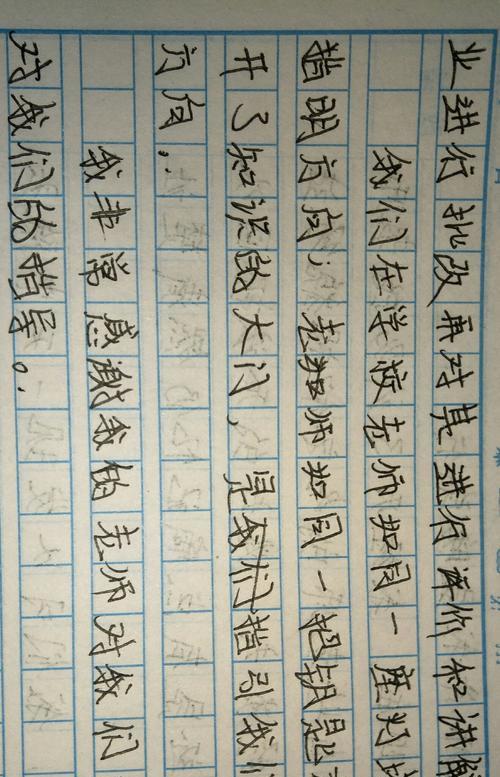 业进行批改再对其进行评价和讲解
我们在学校老师如同一座灯塔
指明方向；老师如同一把钥匙
开了知识的大门，是我们指引我们
方向，
我非常感谢我的老师对我们
对我们的指导。